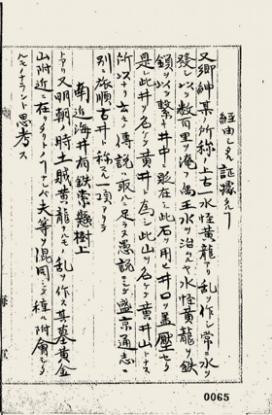 経由しタル証跡ナシ
又郷紳某ノ所称ニ上古水怪黄龍アリ乱ヲ作シ常ニ水ヲ
発シ以テ数百里ヲ淹フ禹王水ヲ治ムルヤ水怪黄龍ヲ鉄
鎖ヲ以テ繋キ井中ニ敢在シ此石ヲ用ヒ井口ヲ蓋圧セリ
是レ此井ヲ名ケテ黄井ト為シ此山ヲ名ケテ黄井山トナス
所以ナリ云々ト傳説取ルニ足ラス愚説ニシテ盛京通志ニ
別ニ旅順古井ト称スル一項アリ
南近海井有鉄索懸樹上
トアリ又明朝ノ時土賊黄龍ナルモノ乱ヲ作ス其墓黄金
山附近ニ在リタリトノコナレハ夫等ヲ混同シテ種々附會シ
ルモノナラント思考ス
0065